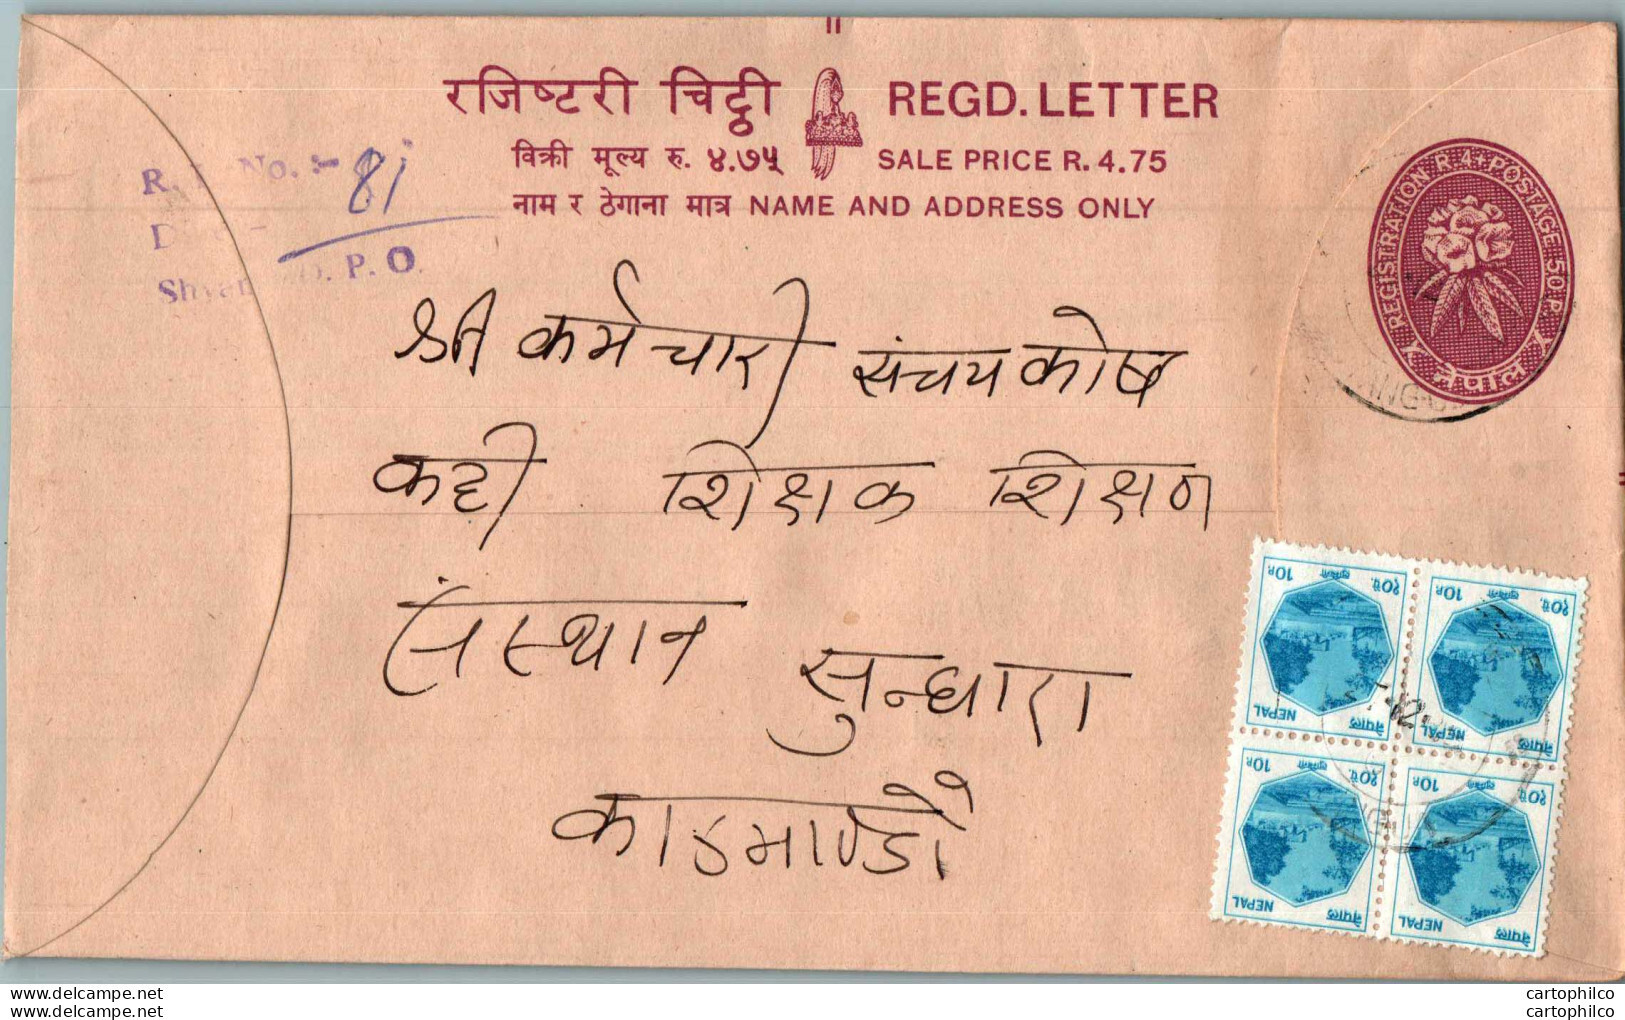 रजिष्टरी चिट्ठी REGD. LETTER
विक्री मूल्य रु. ४.७५ SALE PRICE R. 4.75
नाम र ठेगाना मात्र NAME AND ADDRESS ONLY
No. :- 81
P. O.
REGISTRATION R 4 + POSTAGE 50 P.
नेपाल
श्री कर्मचारी संचय कोष
शिक्षक शिक्षण
संस्थान सुन्धारा
काठमाण्डौं
10P १०पै.
NEPAL नेपाल
10P १०पै.
NEPAL नेपाल
10P १०पै.
NEPAL नेपाल
10P १०पै.
NEPAL नेपाल
delcampe.net
delcampe.net
cartophilco
cartophilco